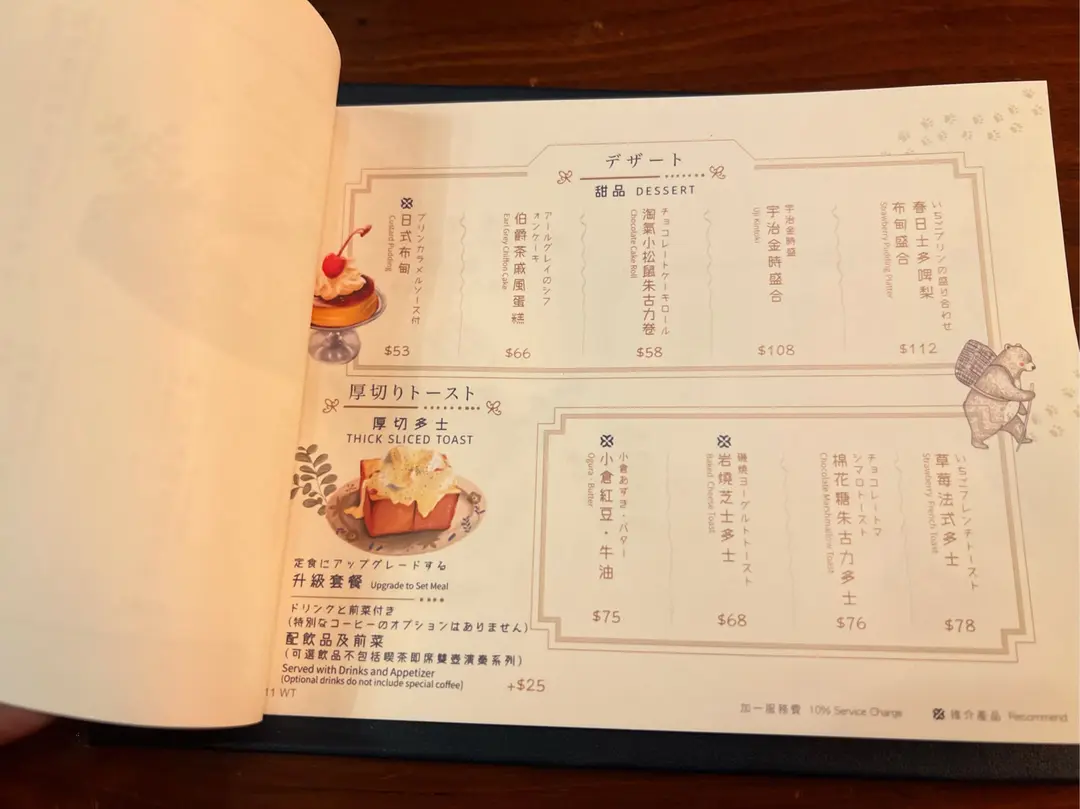 デザート
甜品 DESSERT
いちごプリンの盛り合わせ
春日士多啤梨
布甸盛合
Strawberry Pudding Platter
$112
宇治金時盛
宇治金時盛合
Uji Kintoki
$108
チョコレートケーキロール
淘氣小松鼠朱古力卷
Chocolate Cake Roll
$58
アールグレイのシフ
ォンケーキ
伯爵茶戚風蛋糕
Earl Grey Chiffon Cake
$66
プリンカラメルソース付
日式布甸
Custard Pudding
$53
厚切りトースト
厚切多士
THICK SLICED TOAST
いちごフレンチトースト
草莓法式多士
Strawberry French Toast
$78
チョコレートマ
シマロトースト
棉花糖朱古力多士
Chocolate Marshmallow Toast
$76
磯焼ヨーグルトトースト
岩燒芝士多士
Baked Cheese Toast
$68
小倉あずき・バター
小倉紅豆・牛油
Ogura・Butter
$75
定食にアップグレードする
升級套餐 Upgrade to Set Meal
ドリンクと前菜付き
(特別なコーヒーのオプションはありません)
配飲品及前菜
(可選飲品不包括喫茶即席雙壺演奏系列)
Served with Drinks and Appetizer
(Optional drinks do not include special coffee)
+$25
11 WT
加一服務費 10% Service Charge
推介產品 Recommend